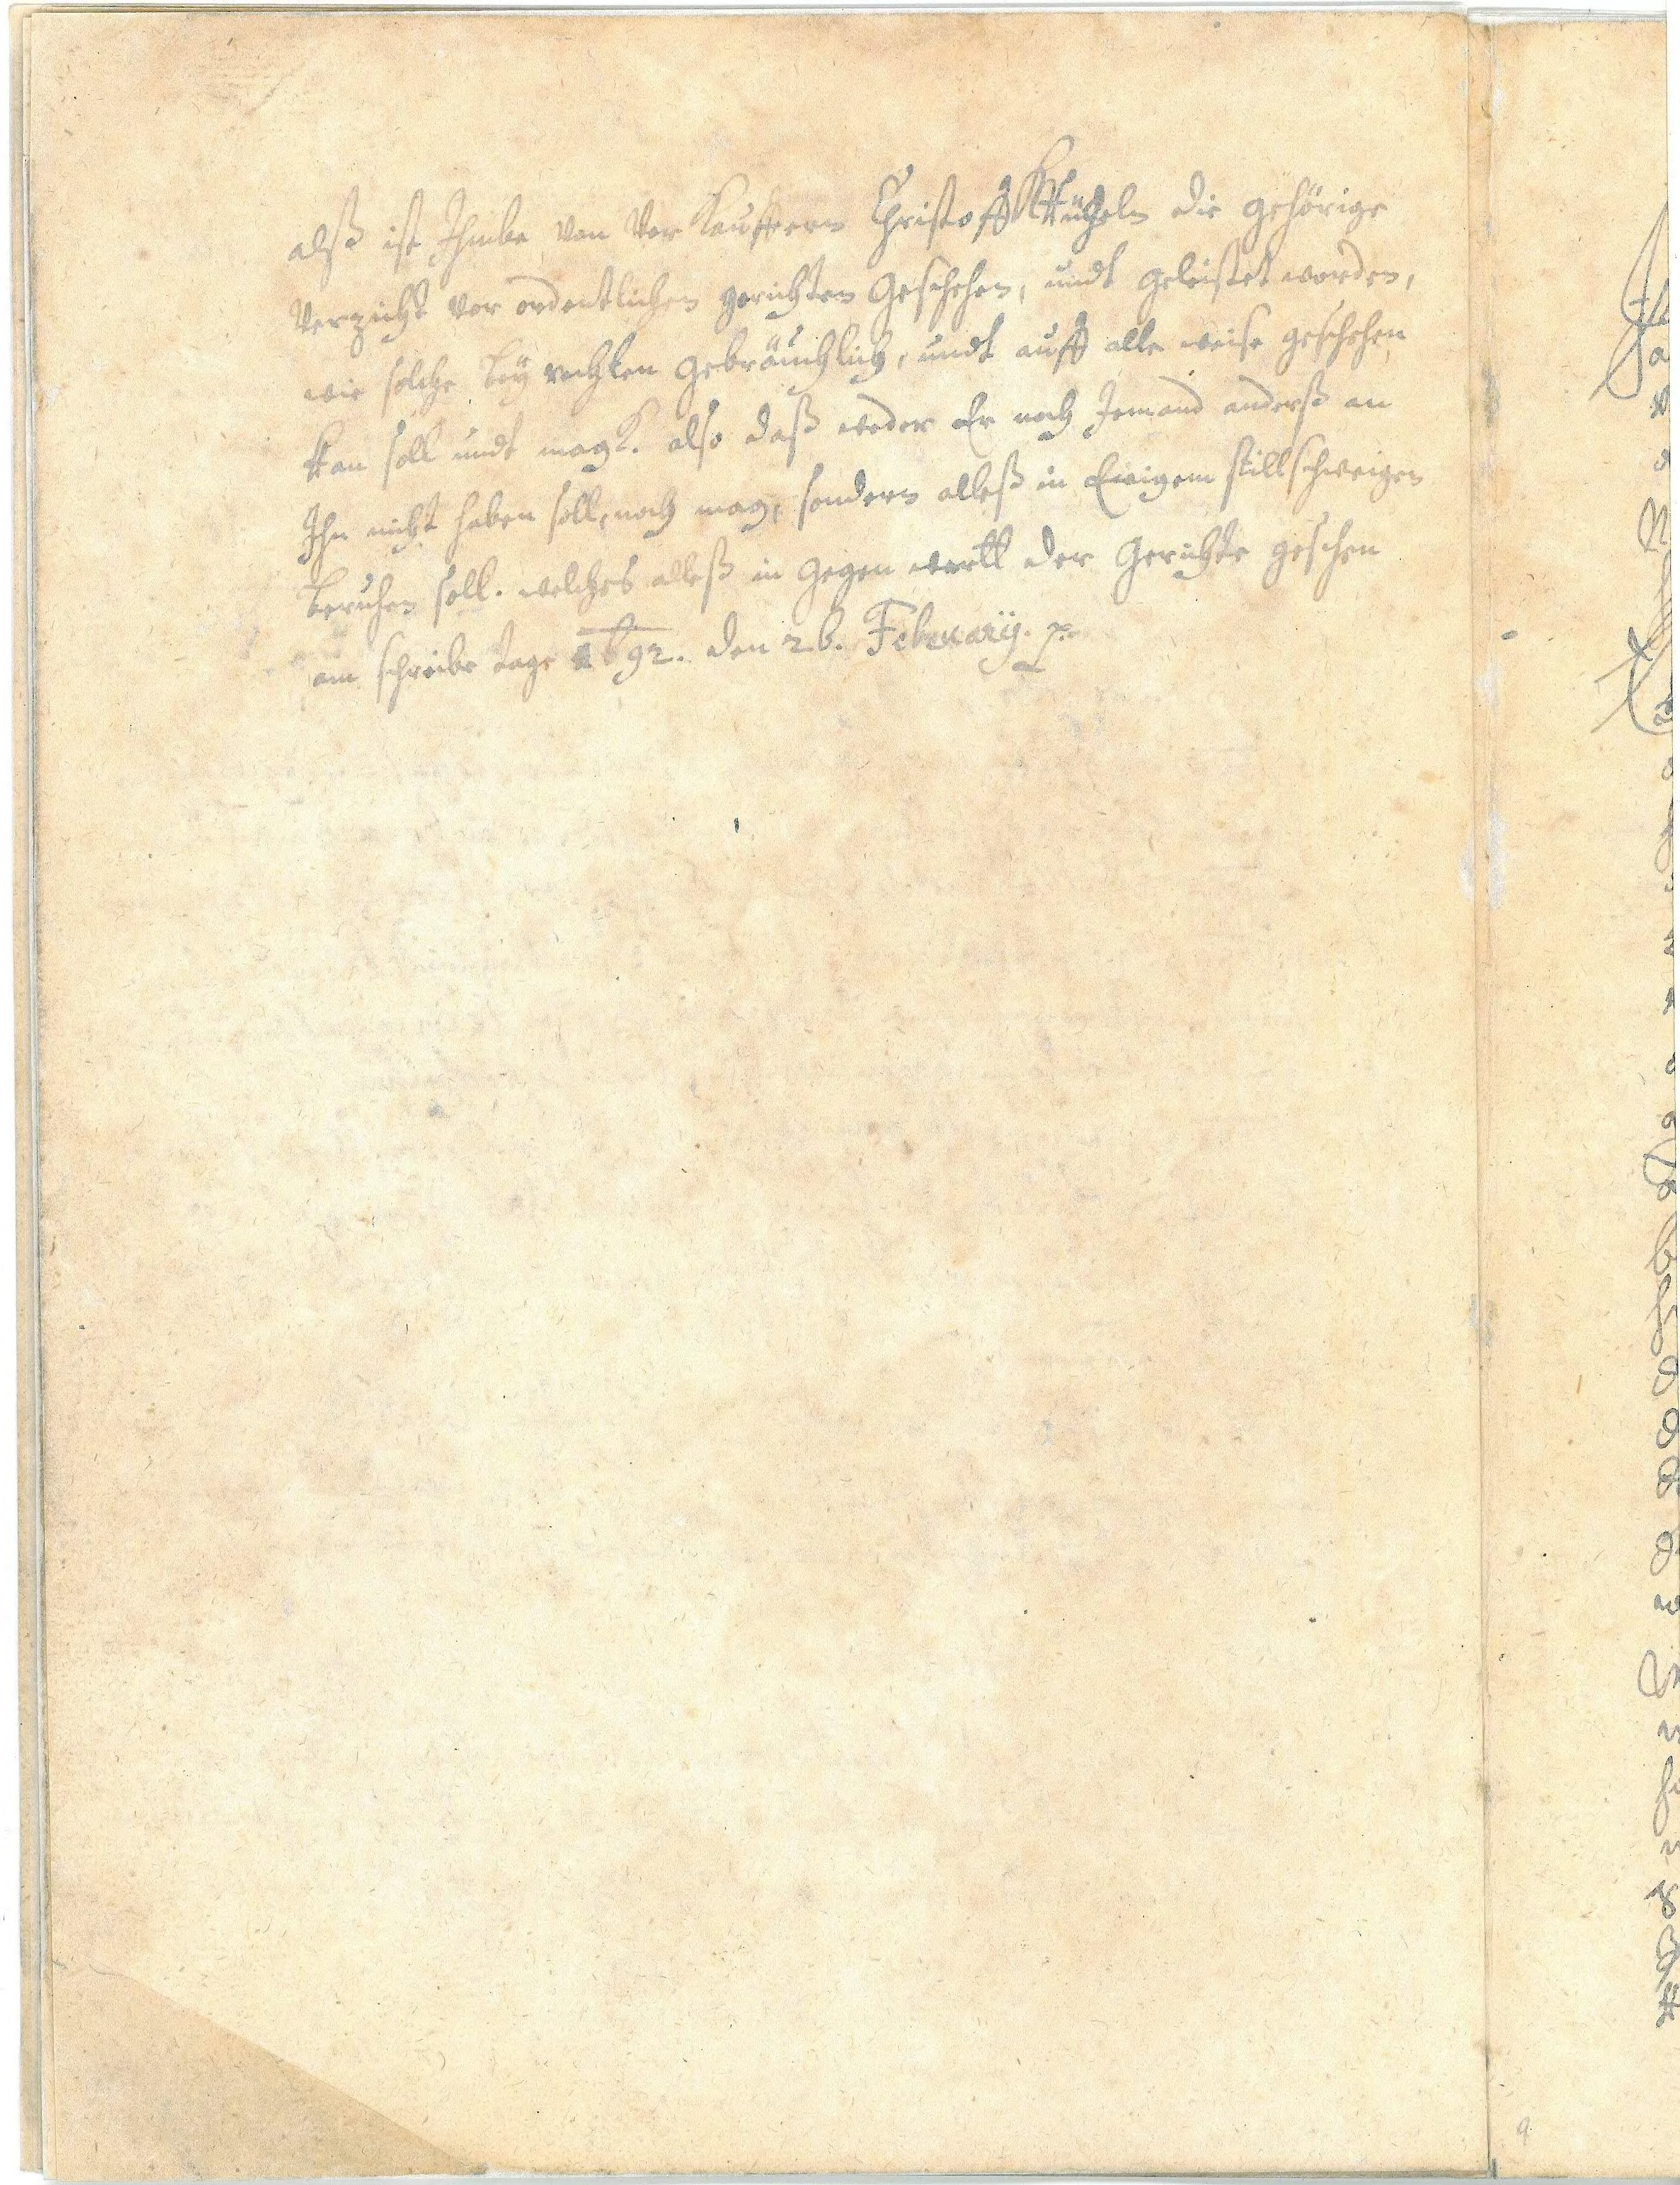 alß ist Ihme von Ver Kauffern Christoff die gehörige
Verzicht vor ordentlichen gerichten Geschehen, undt geleistet worden,
wie solche bey rechten gebräuchlich, undt auff alle weise geschehen
kan soll undt magk. also daß weder Er noch Jemand anderß an
Ihn nicht haben soll, noch mag, sondern alleß in Ewigem stillschweigen
beruhen soll. welches alleß in gegen wertt der Gerichte geschen
am schreibe tage 1692. den 26. February.